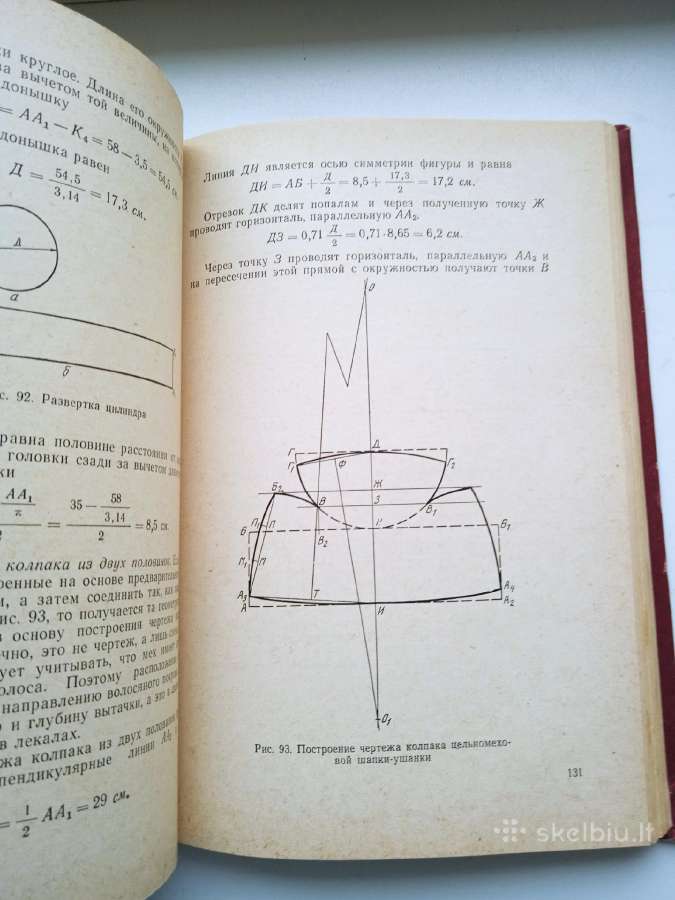 и круглое. Длина его окружности
за вычетом той величины, на
донышку
= АА₁ — К₄ = 58 — 3,5 = 54,5 см
донышка равен
Д = 54,5 / 3,14 = 17,3 см.
Д
а
б
с. 92. Развертка цилиндра
равна половине расстояния от
головки сзади за вычетом
ки
АА₁ / π / 2 = 35 — 58 / 3,14 / 2 = 8,5 см.
колпака из двух половинок.
роенные на основе предварительно
и, а затем соединить так, как
ис. 93, то получается та
в основу построения чертежа
ечно, это не чертеж, а лишь
ует учитывать, что мех имеет
олоса. Поэтому расположение
направлению волосяного
о и глубину вытачки, а это
в лекалах.
жа колпака из двух половинок
пендикулярные линии АА₂
= 1/2 АА₁ = 29 см.
Линия ДИ является осью симметрии фигуры и равна
ДИ = АБ + Д/2 = 8,5 + 17,3/2 = 17,2 см.
Отрезок ДК делят попалам и через полученную точку Ж
проводят горизонталь, параллельную АА₂.
ДЗ = 0,71 Д/2 = 0,71·8,65 = 6,2 см.
Через точку З проводят горизонталь, параллельную АА₂ и
на пересечении этой прямой с окружностью получают точки В
О
Г Д
Г₁ Ф Г₂
Б₂ Ж
В З В₁
П₁ Л
Б В₂ К Б₁
П₁ П
А₃ Т А₄
А И А₂
О₁
Рис. 93. Построение чертежа колпака цельномехо-
вой шапки-ушанки
131
skelbiu.lt